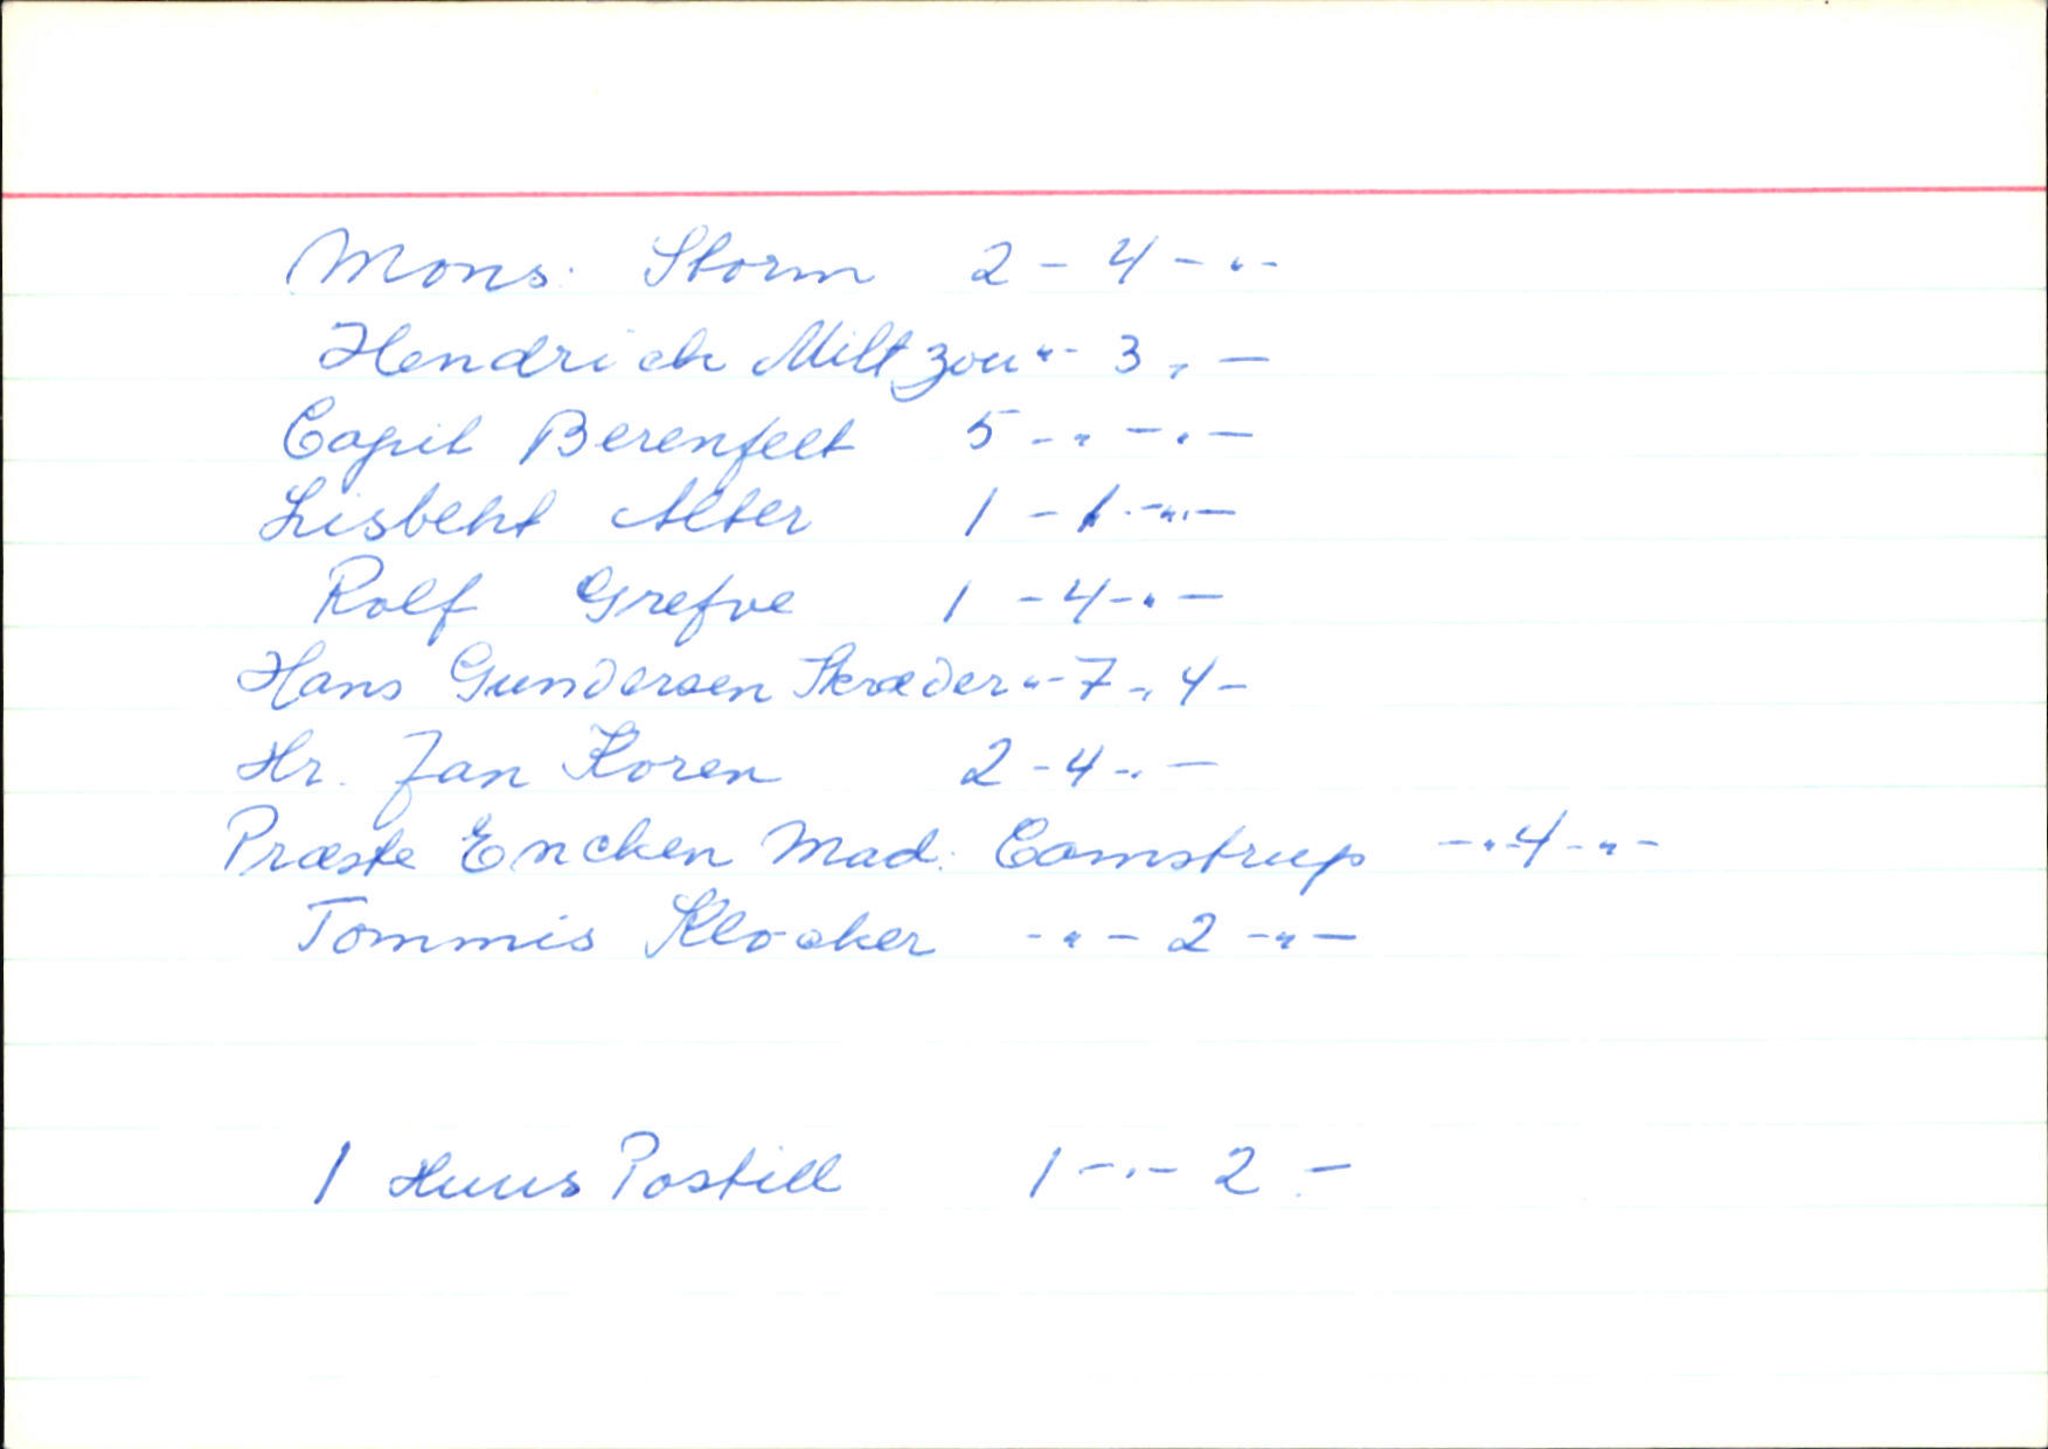 Mons: Storm 2 - 4 - " -
Hendrich Miltzou " - 3 " -
Capit Berenfelt 5 - " - " -
Lisbeht Alter 1 - 1 - " -
Rolf Grefve 1 - 4 - " -
Hans Gundersen Skræder " - 7 - " 4 -
Hr. Jan Koren 2 - 4 - " -
Præste Encken Mad: Comstrup - " - 4 - " -
Tommis Klocker - " - 2 - " -
1 Huus Postill 1 - " - 2 -